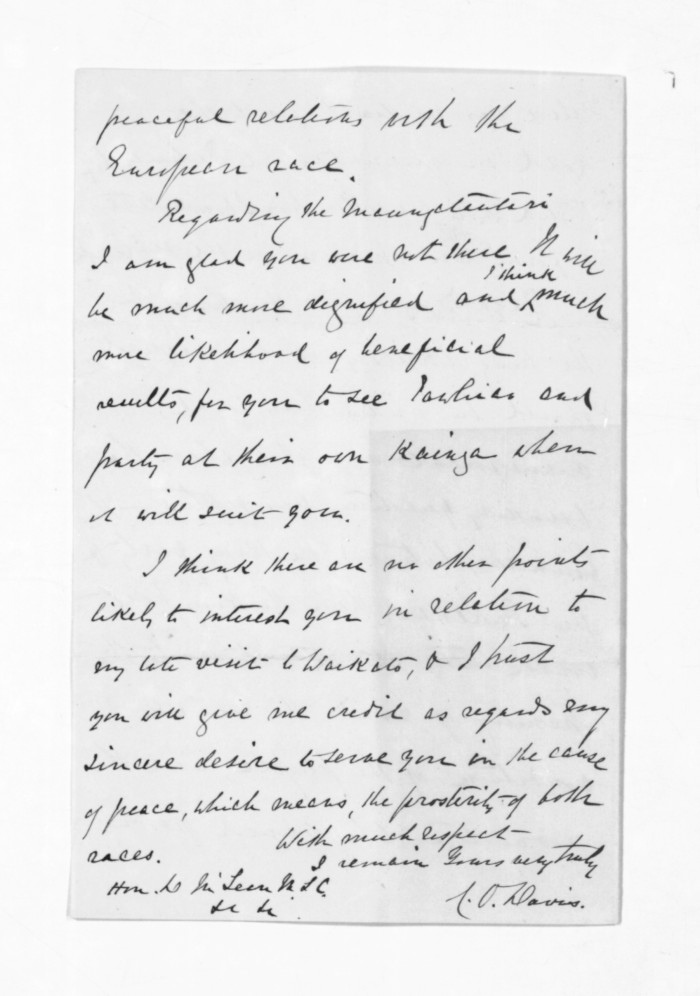 peaceful relations with the
European race.
Regarding the Maungatautari
I am glad you were not there. It will
be much more dignified and I think much
more likelihood of beneficial
results, for you to see Tawhiao and
party at their own Kainga when
it will suit you.
I think there are no other points
likely to interest you in relation to
my late visit to Waikato, & I trust
you will give me credit as regards my
sincere desire to serve you in the cause
of peace, which means, the prosterity of both
races.
With much respect
I remain Yours very truly
C. O. Davis.
Hon. D McLean
&c &c.